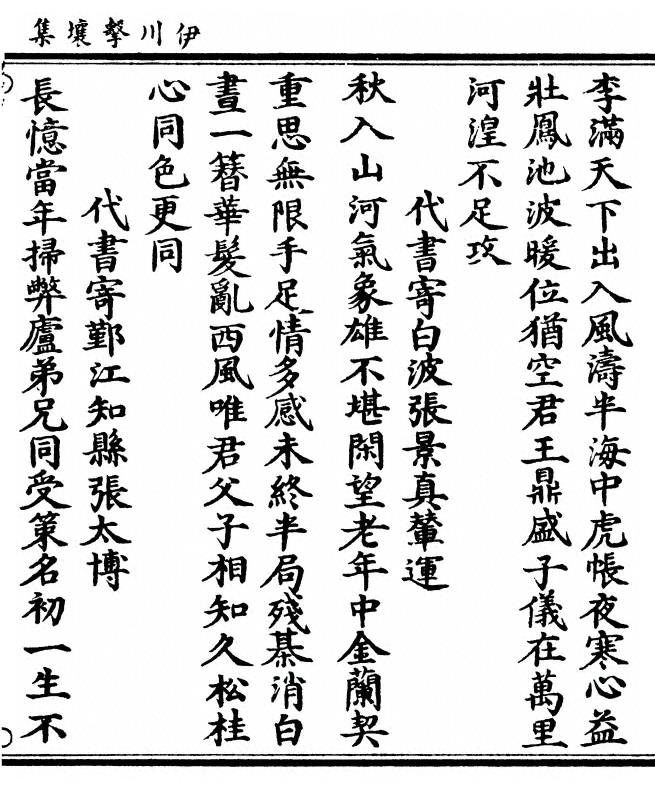 伊川擊壤集
李滿天下出入風濤半海中虎帳夜寒心益
壯鳳池波暖位猶空君王鼎盛子儀在萬里
河湟不足攻
代書寄白波張景真輦運
秋入山河氣象雄不堪閑望老年中金蘭契
重思無限手足情多感未終半局殘棊消白
晝一簪華髮亂西風唯君父子相知久松桂
心同色更同
代書寄鄞江知縣張太博
長憶當年掃弊廬弟兄同受策名初一生不